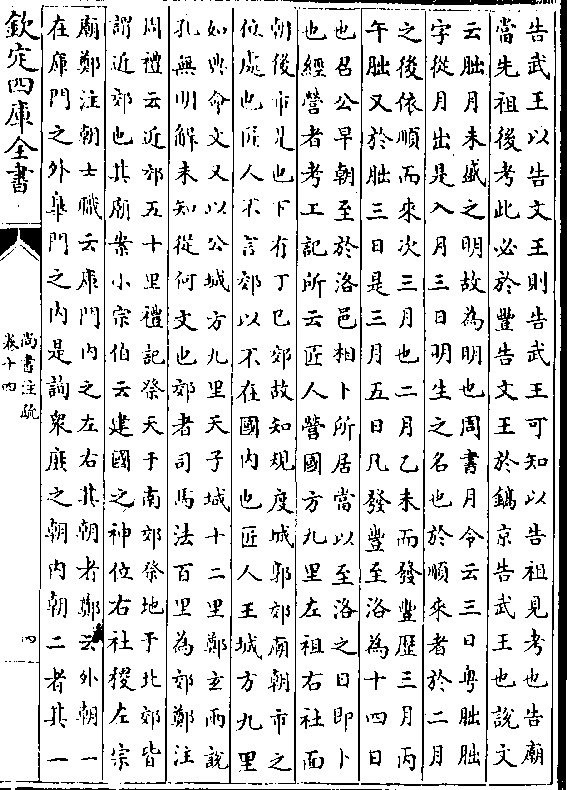 告武王以告文王則告武王可知以告祖見考也告廟
當先祖後考此必於豐告文王於鎬京告武王也說文
云朏月未盛之明故為明也周書月令云三日粤朏朏
字從月出是入月三日明生之名也於順來者於二月
之後依順而來次三月也二月乙未而發豐歷三月丙
午朏又於朏三日是三月五日凡發豐至洛為十四日
也召公早朝至於洛邑相卜所居當以至洛之日即卜
也經營者考工記所云匠人營國方九里左祖右社面
朝後市是也下有丁巳郊故知規度城郭郊廟朝市之
位處也匠人不言郊以不在國内也匠人王城方九里
如典命文又以公城方九里天子城十二里鄭玄兩說
孔無明解未知從何文也郊者司馬法百里為郊鄭注
周禮云近郊五十里禮記祭天于南郊祭地于北郊皆
謂近郊也其廟案小宗伯云建國之神位右社稷左宗
廟鄭注朝士職云庫門内之左右其朝者鄭云外朝一
在庫門之外臯門之内是詢衆庶之朝内朝二者其一
欽定四庫全書
尚書注疏
卷十四
四